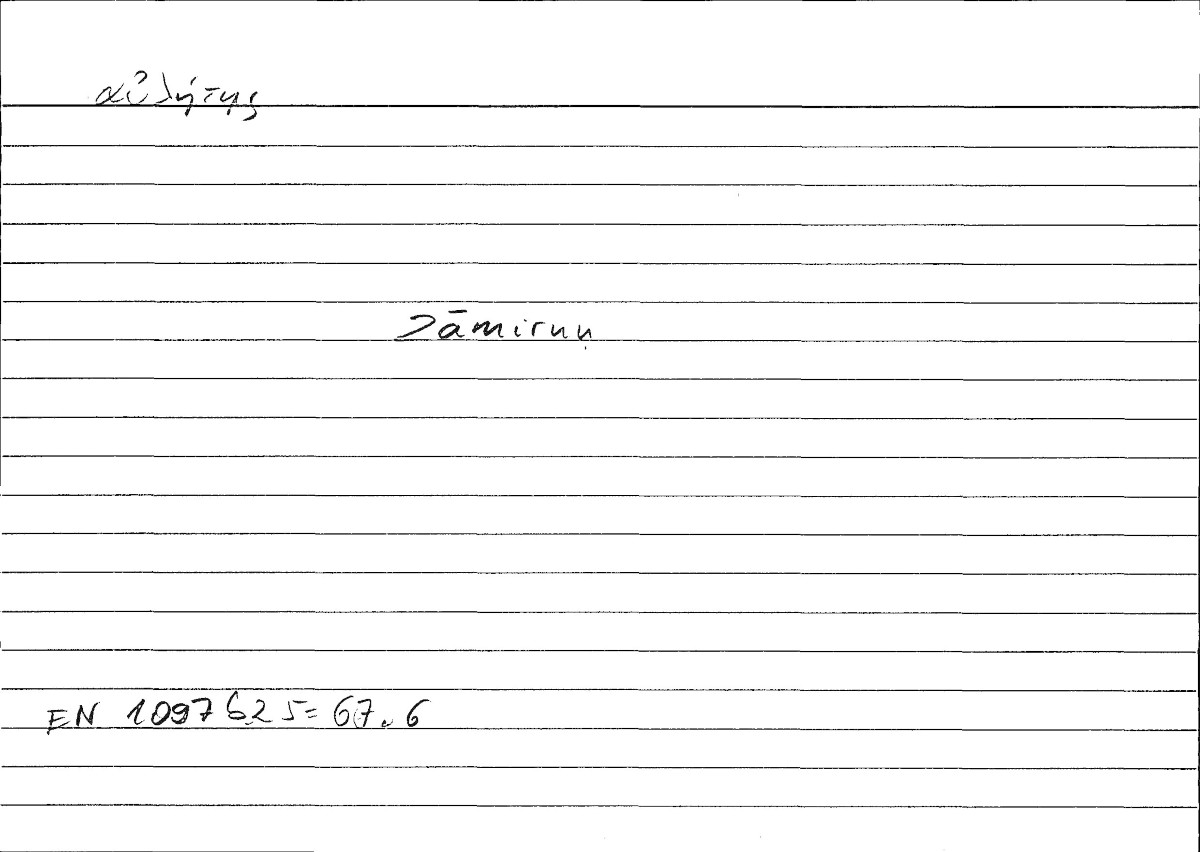 αὐλήτης
zāmiruṇ
EN 1097 b25 = 67.6